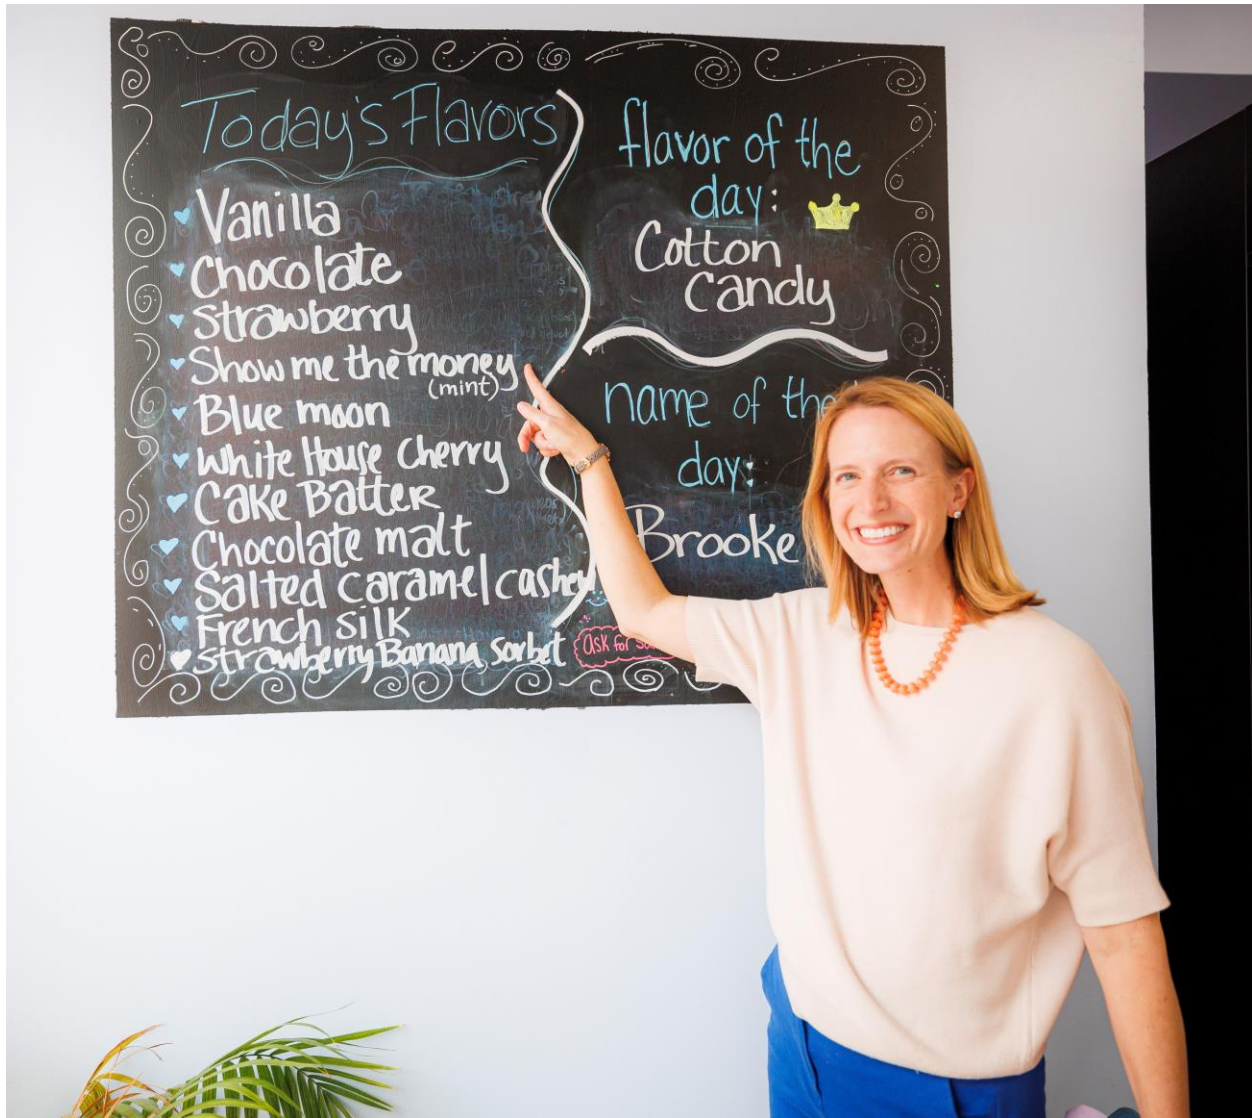 Today's Flavors
Vanilla
Chocolate
Strawberry
Show me the money
(mint)
Blue moon
White House Cherry
Cake Batter
Chocolate malt
Salted caramel cashew
French silk
Strawberry Banana Sorbet
flavor of the
day:
Cotton
Candy
name of the
day:
Brooke
ask for